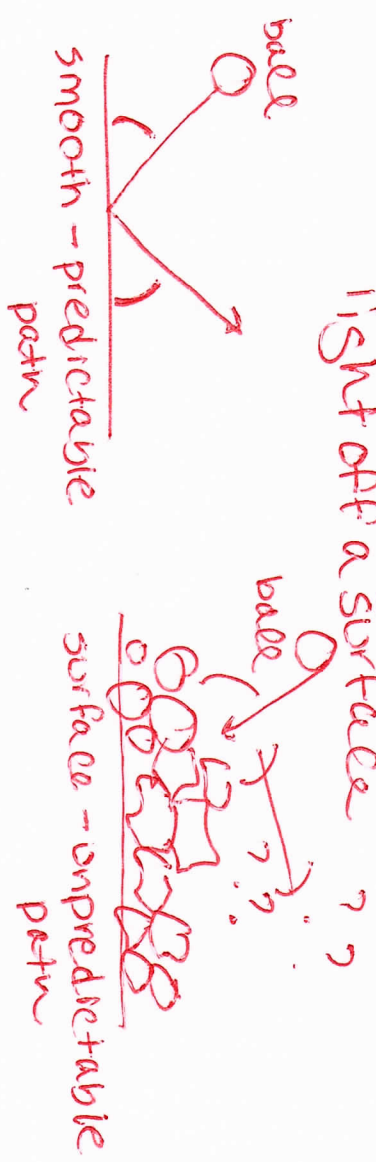 light off a surface ? ?
ball
smooth - predictable
path
ball
? ?
surface - unpredictable
path